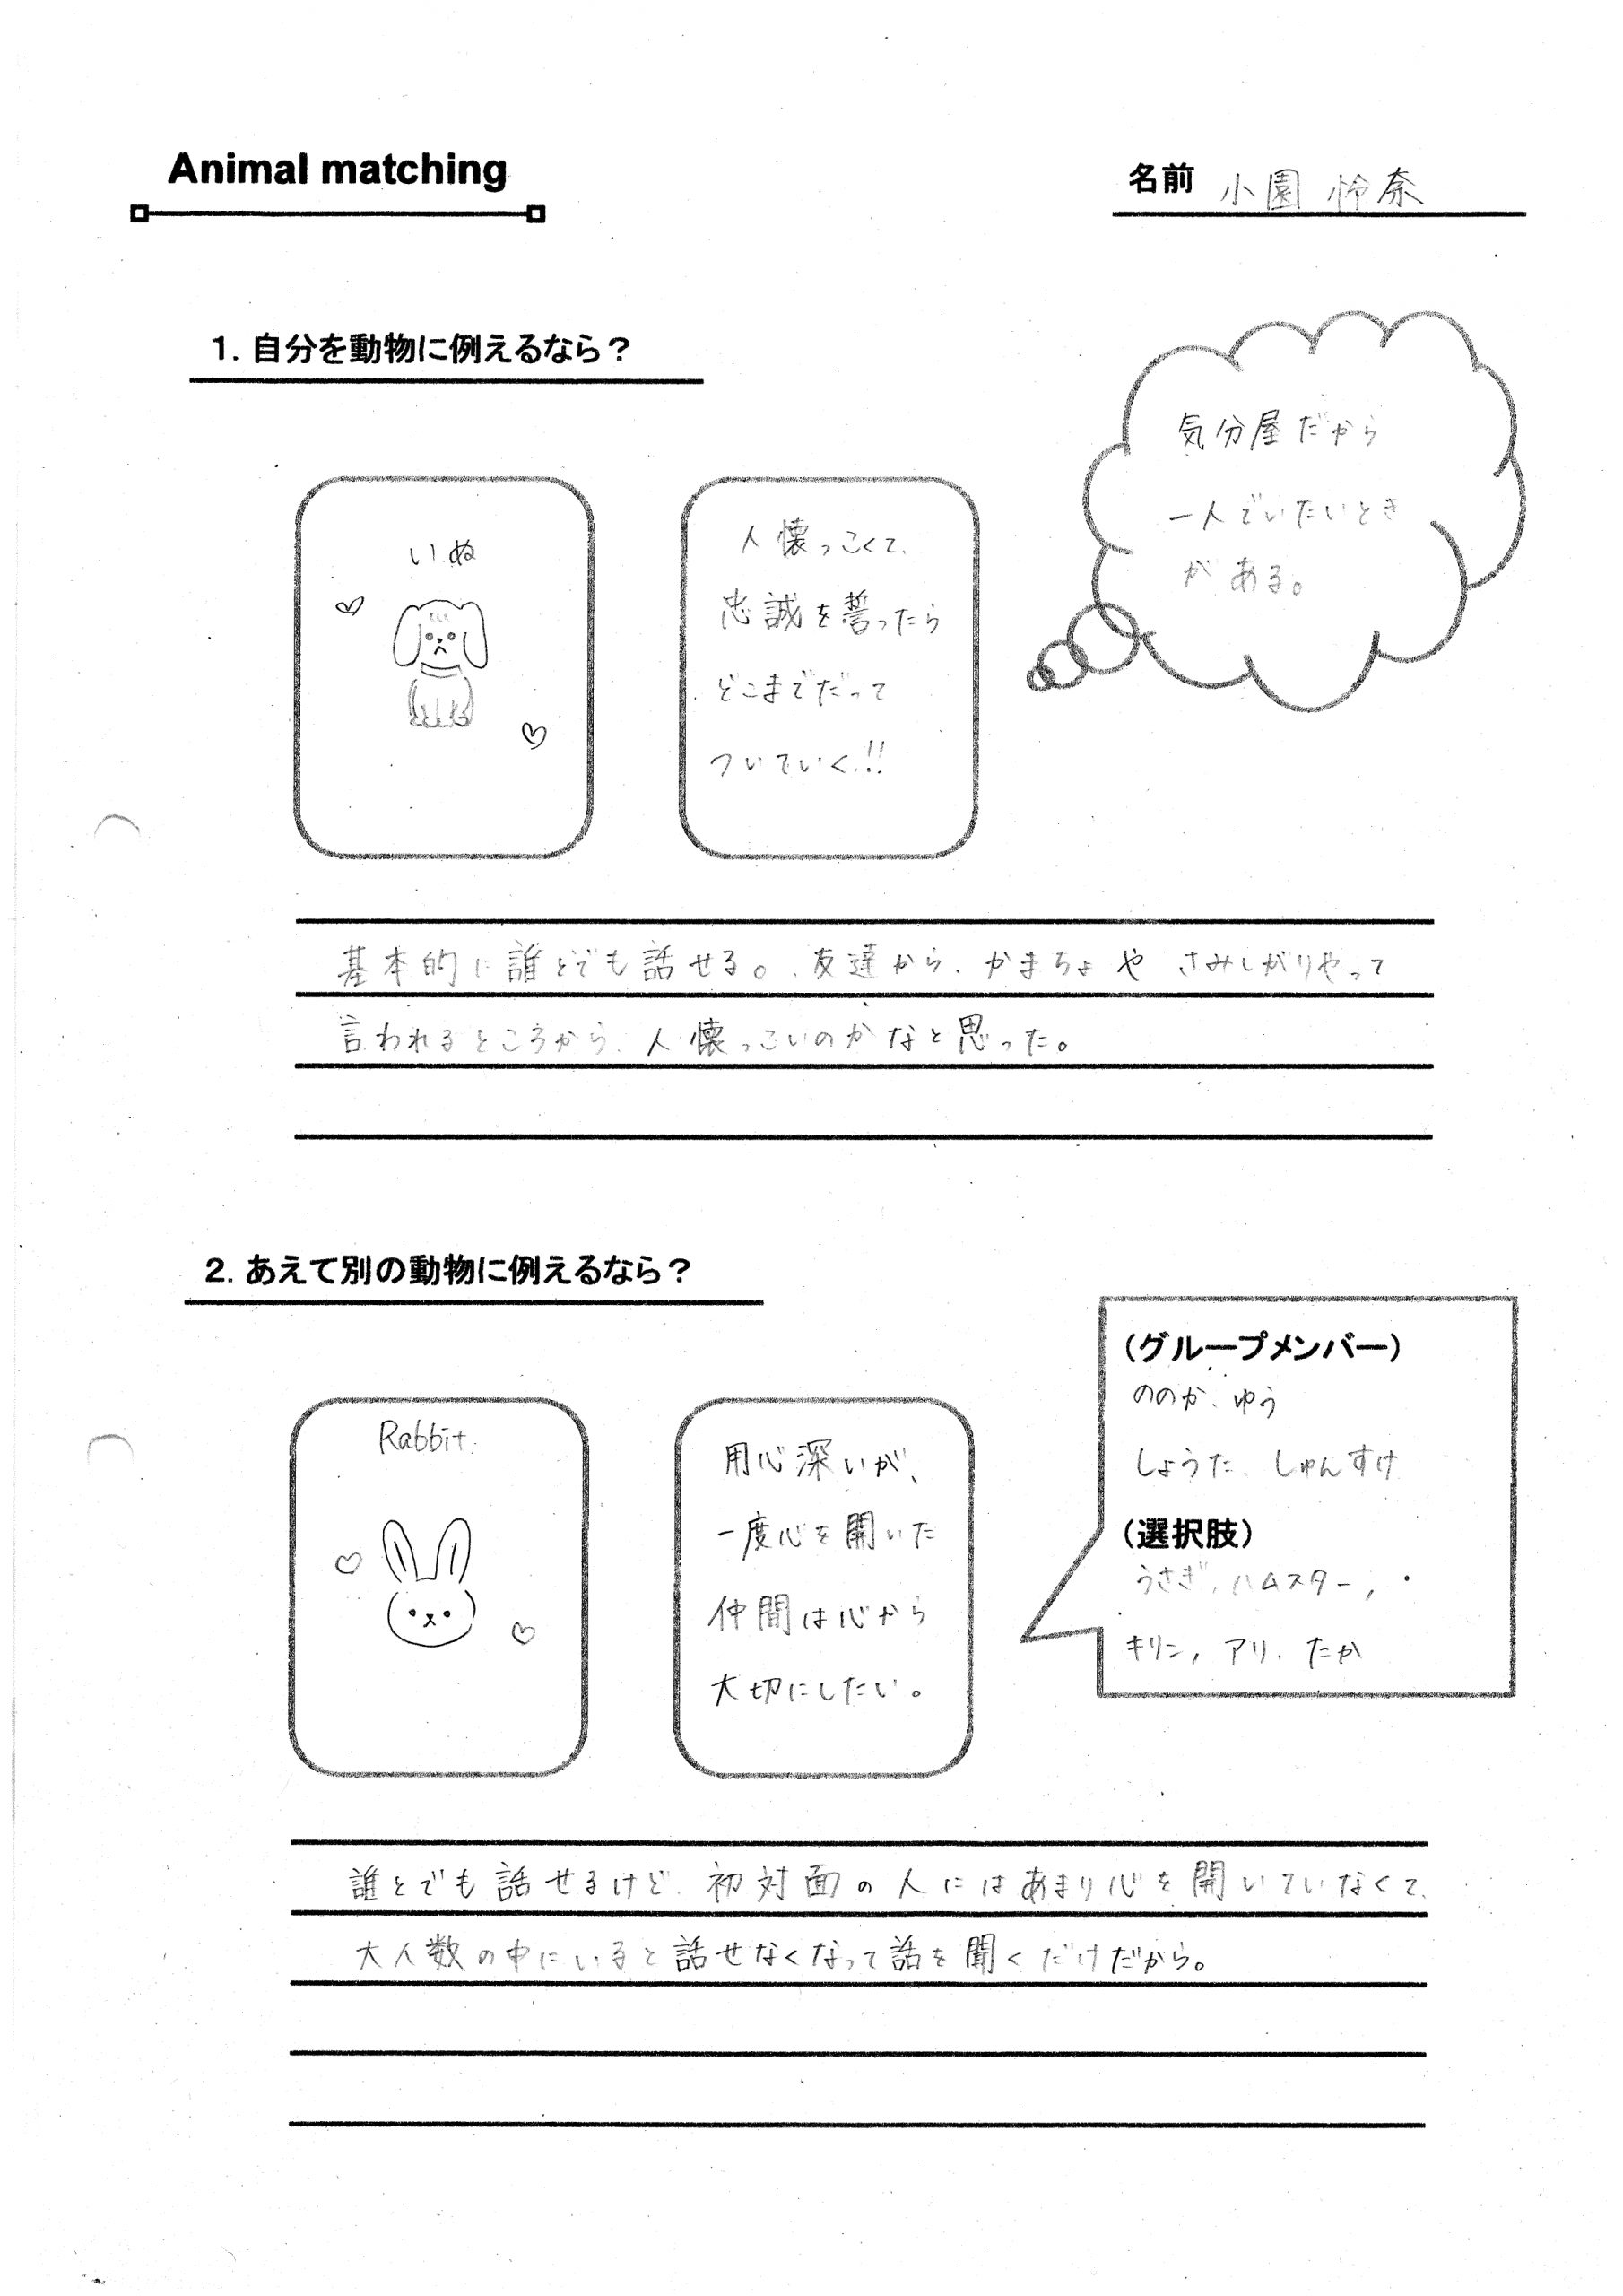 Animal matching
名前 小園 怜奈
1. 自分を動物に例えるなら？
気分屋だから
一人でいたいとき
がある。
いぬ
人懐っこくて、
忠誠を誓ったら
どこまでだって
ついていく!!
基本的に誰とでも話せる。友達から、かまちょや さみしがりやって
言われるところから、人懐っこいのかなと思った。
2. あえて別の動物に例えるなら？
(グループメンバー)
ののか、ゆう
しょうた、しゅんすけ
(選択肢)
うさぎ, ハムスター,
キリン, アリ, たか
Rabbit
用心深いが、
一度心を開いた
仲間は心から
大切にしたい。
誰とでも話せるけど、初対面の人にはあまり心を開いていなくて、
大人数の中にいると話せなくなって話を聞くだけだから。